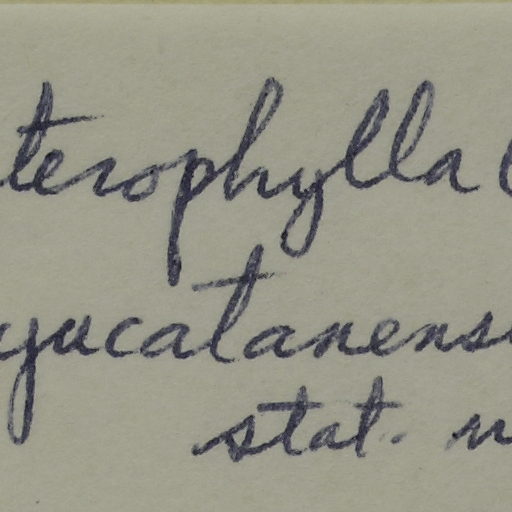 terophylla (
yucatanensi
stat. n